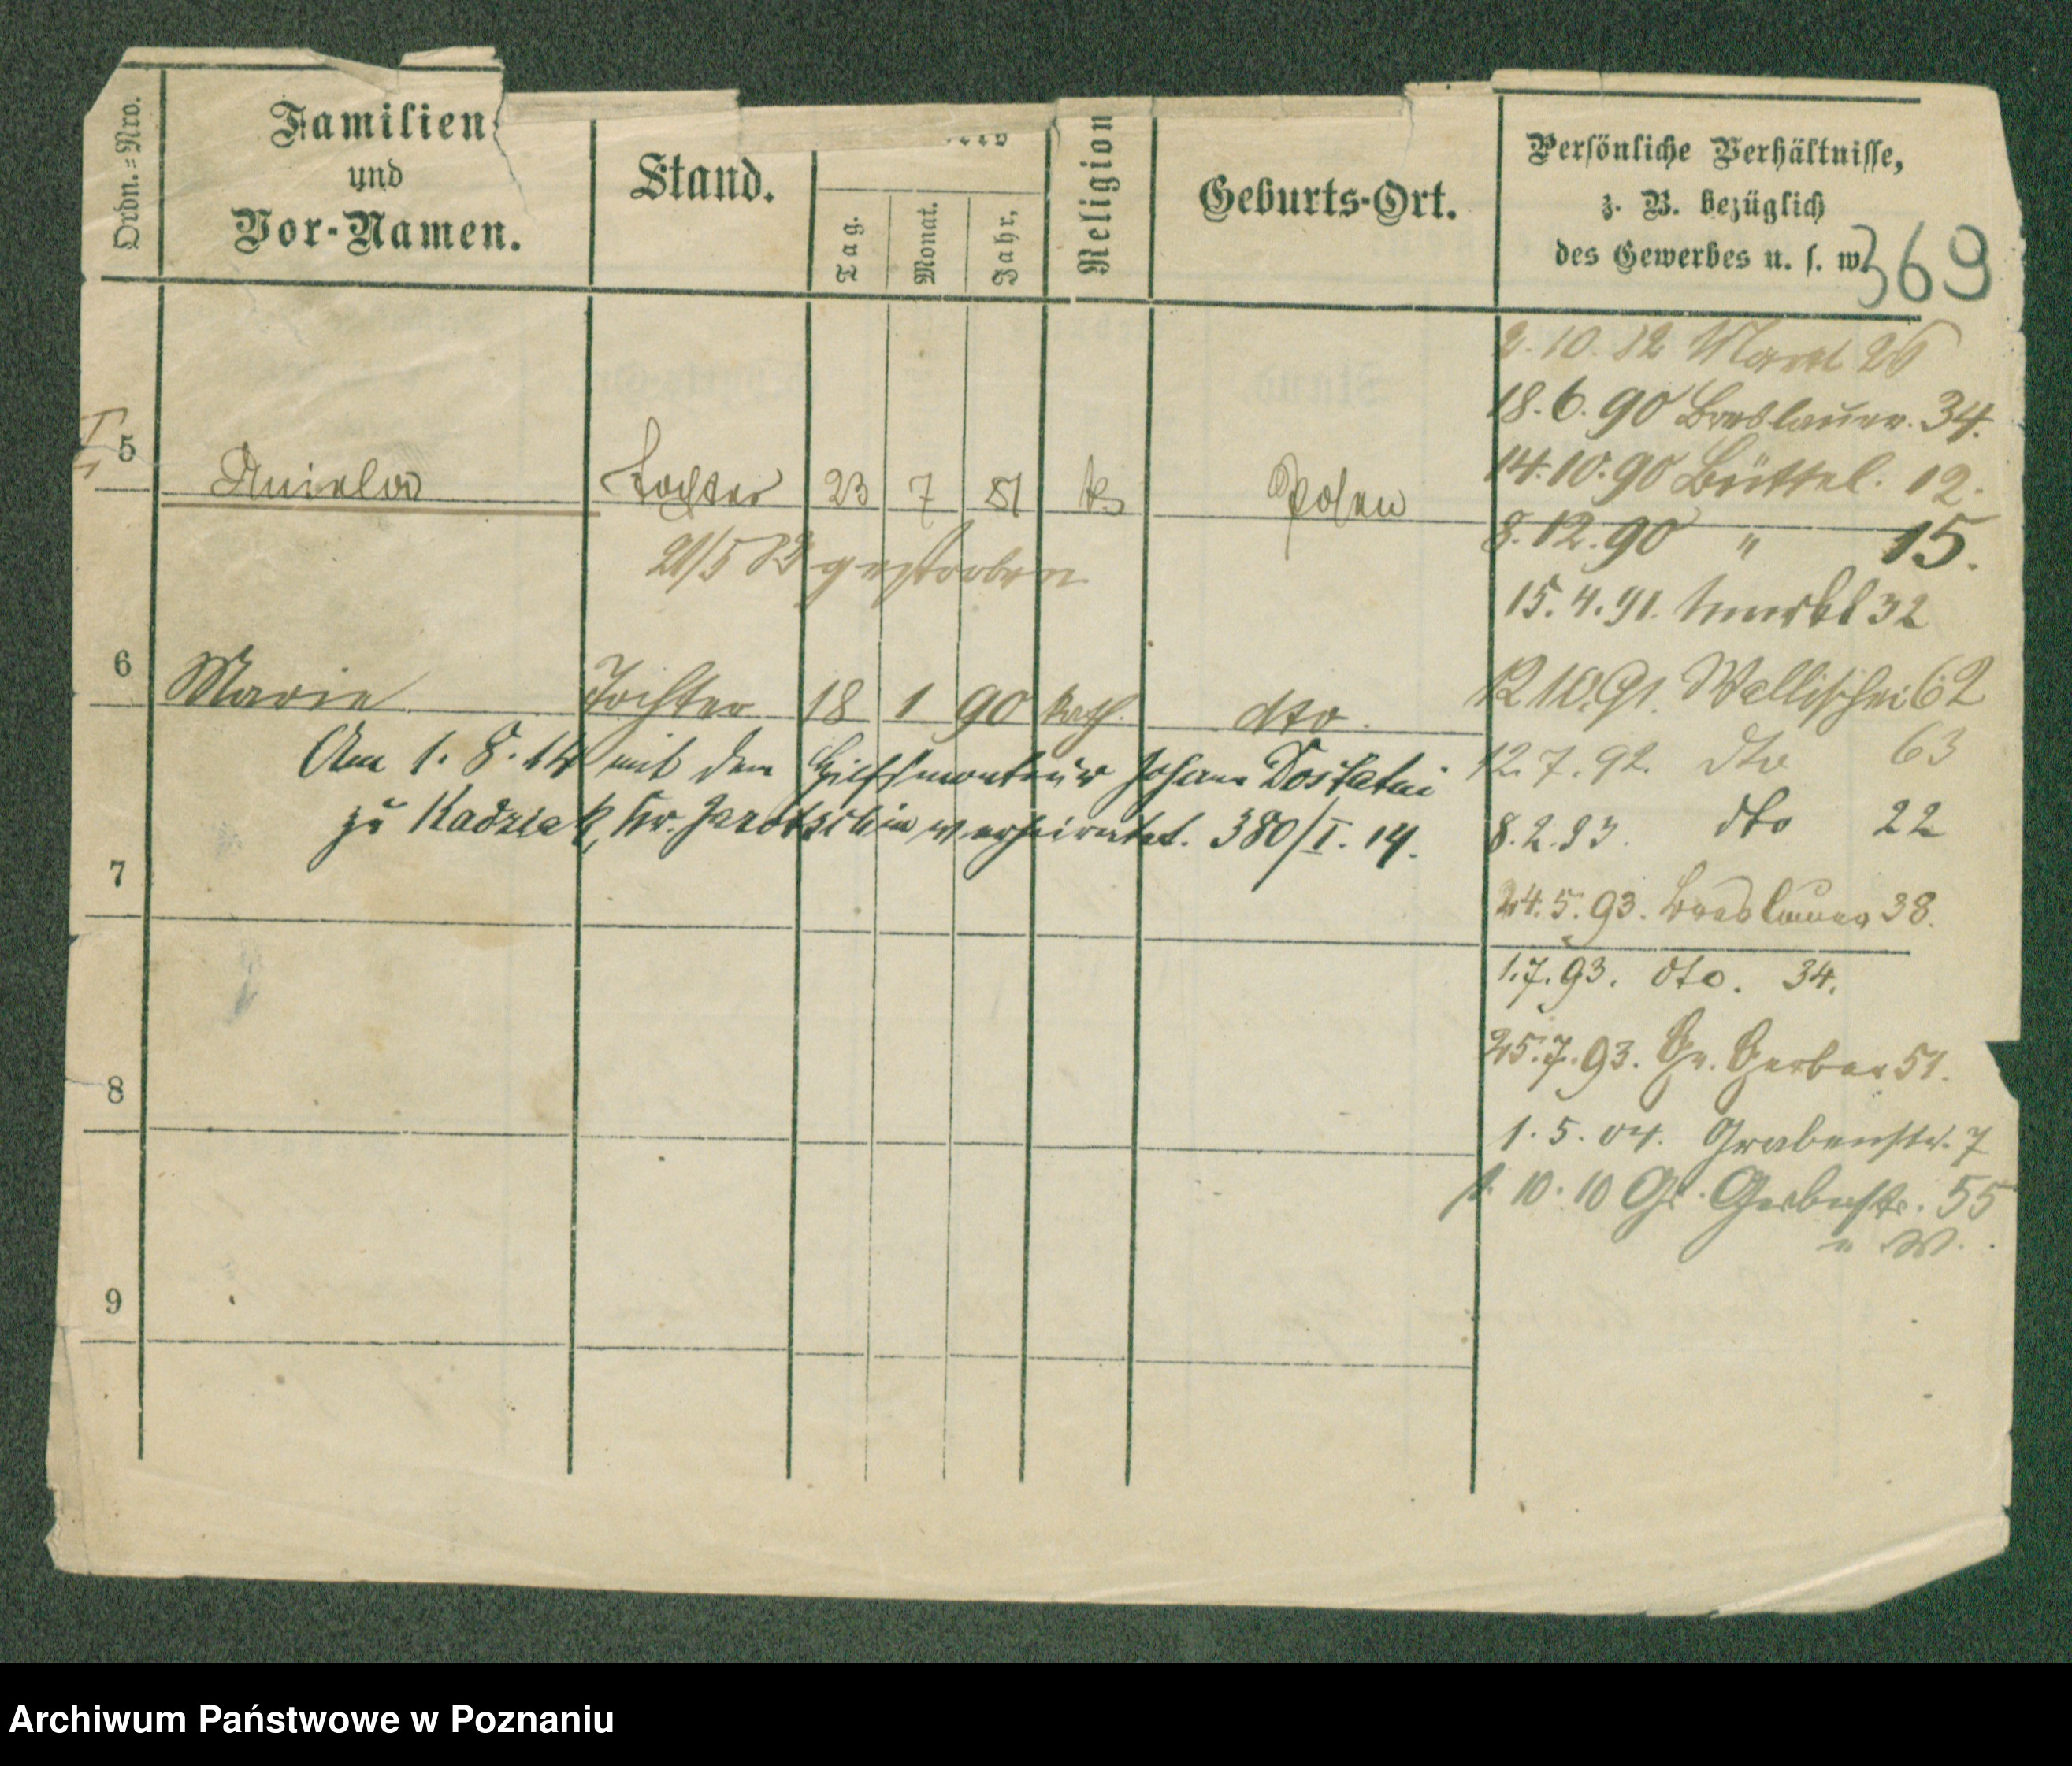 Ordn.=Nro.
Familien-
und
Vor-Namen.
Stand.
Tag.
Monat.
Jahr.
Religion
Geburts-Ort.
Persönliche Verhältnisse,
z. B. bezüglich
des Gewerbes u. s. w.
369
2. 10. 82 Markt 26
18. 6. 90 Breslauer. 34.
5 Aniela Tochter 23 7 81 k Posen
14. 10. 90 Büttel. 12.
8. 12. 90 " 15.
21/5 83 gestorben
15. 4. 91. 32
6 Marie Tochter 18 1 90 kath. dto.
12. 10. 91. Wallischei 62
Am 1. 8. 14 mit dem Hilfsmonteur Johann Dostatni
12. 7. 92. dto 63
zu Radziak, Kr. Jarotschin verheiratet. 380/I. 14.
8. 2. 93. dto 22
7
24. 5. 93. Breslauer 38.
1. 7. 93. dto. 34.
25. 7. 93. Gr. Gerber 51.
8
1. 5. 04. Grabenstr. 7
1. 10. 10 Gr. Gerberstr. 55
9
Archiwum Państwowe w Poznaniu